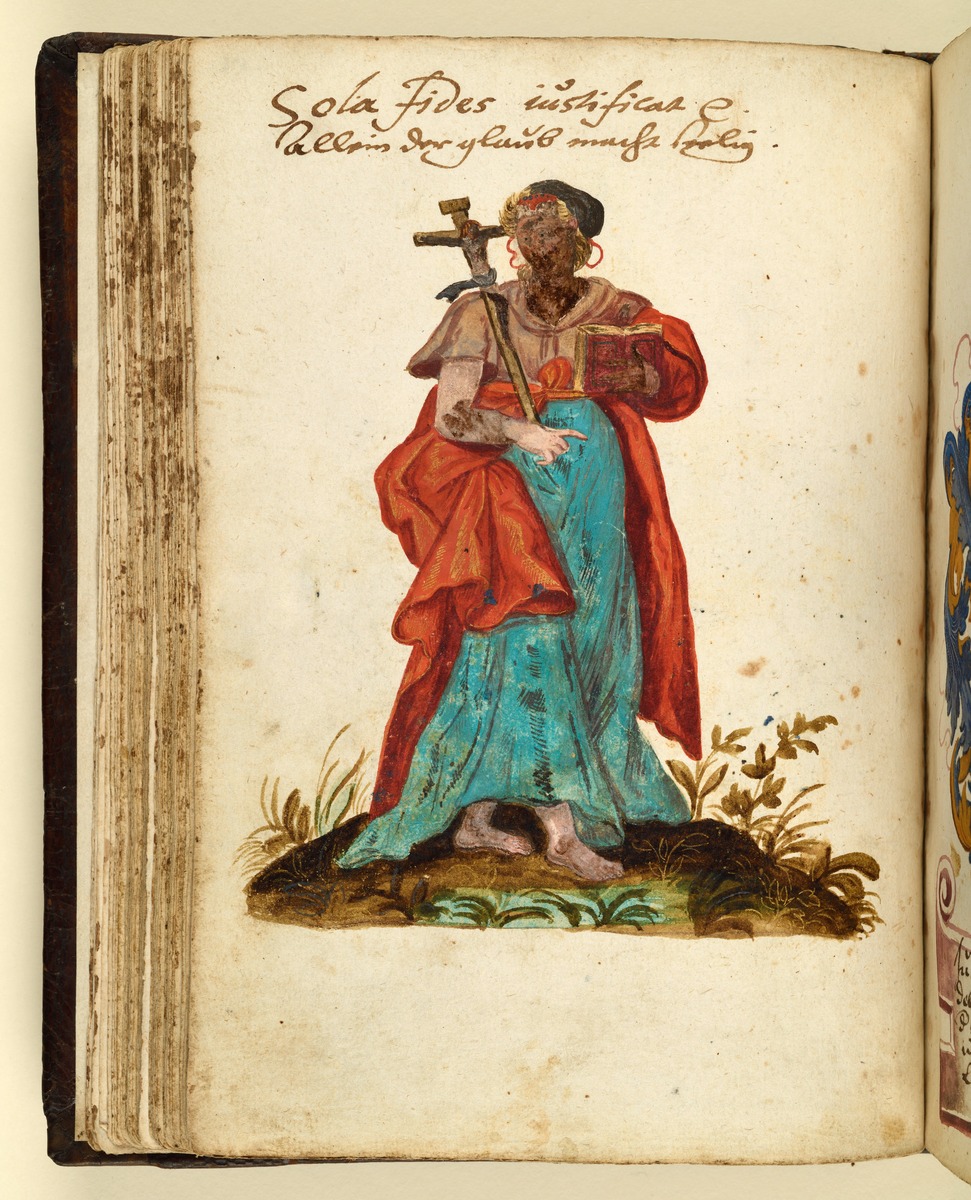 Sola Fides iustificat
allein der glaub macht seelig.